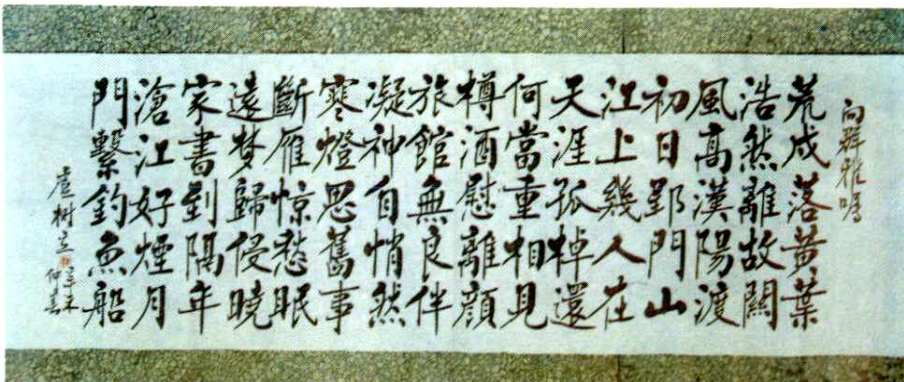 向群雅嘱
荒戍落黃葉
浩然離故關
風高漢陽渡
初日郢門山
江上幾人在
天涯孤棹還
何當重相見
樽酒慰離顏
旅館無良伴
凝神自悄然
寒燈思舊事
斷雁惊愁眠
遠梦歸侵曉
家書到隔年
滄江好煙月
門繫釣魚船
盧树立
辛未
仲春